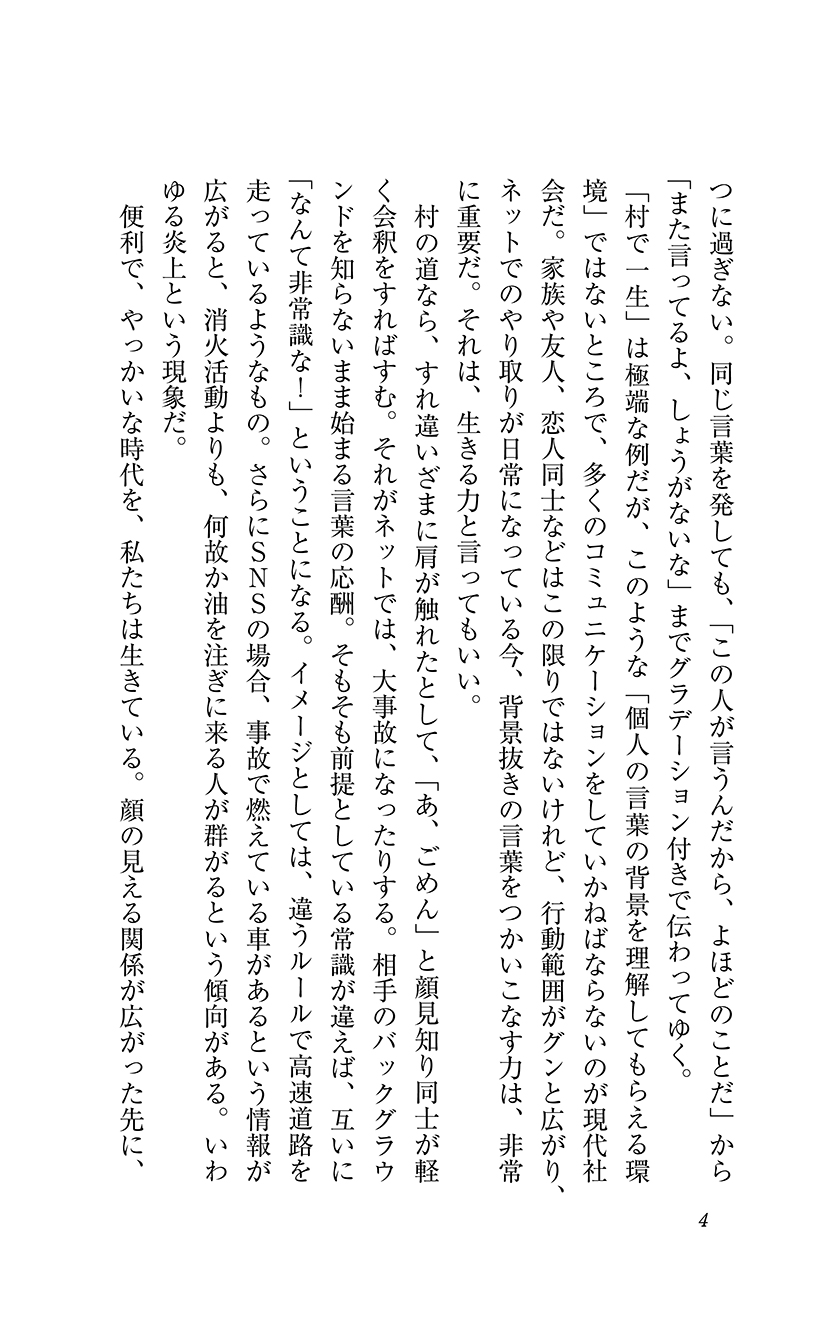 つに過ぎない。同じ言葉を発しても、「この人が言うんだから、よほどのことだ」から
「また言ってるよ、しょうがないな」までグラデーション付きで伝わってゆく。
「村で一生」は極端な例だが、このような「個人の言葉の背景を理解してもらえる環
境」ではないところで、多くのコミュニケーションをしていかねばならないのが現代社
会だ。家族や友人、恋人同士などはこの限りではないけれど、行動範囲がグンと広がり、
ネットでのやり取りが日常になっている今、背景抜きの言葉をつかいこなす力は、非常
に重要だ。それは、生きる力と言ってもいい。
村の道なら、すれ違いざまに肩が触れたとして、「あ、ごめん」と顔見知り同士が軽
く会釈をすればすむ。それがネットでは、大事故になったりする。相手のバックグラウ
ンドを知らないまま始まる言葉の応酬。そもそも前提としている常識が違えば、互いに
「なんて非常識な！」ということになる。イメージとしては、違うルールで高速道路を
走っているようなもの。さらにＳＮＳの場合、事故で燃えている車があるという情報が
広がると、消火活動よりも、何故か油を注ぎに来る人が群がるという傾向がある。いわ
ゆる炎上という現象だ。
便利で、やっかいな時代を、私たちは生きている。顔の見える関係が広がった先に、
4